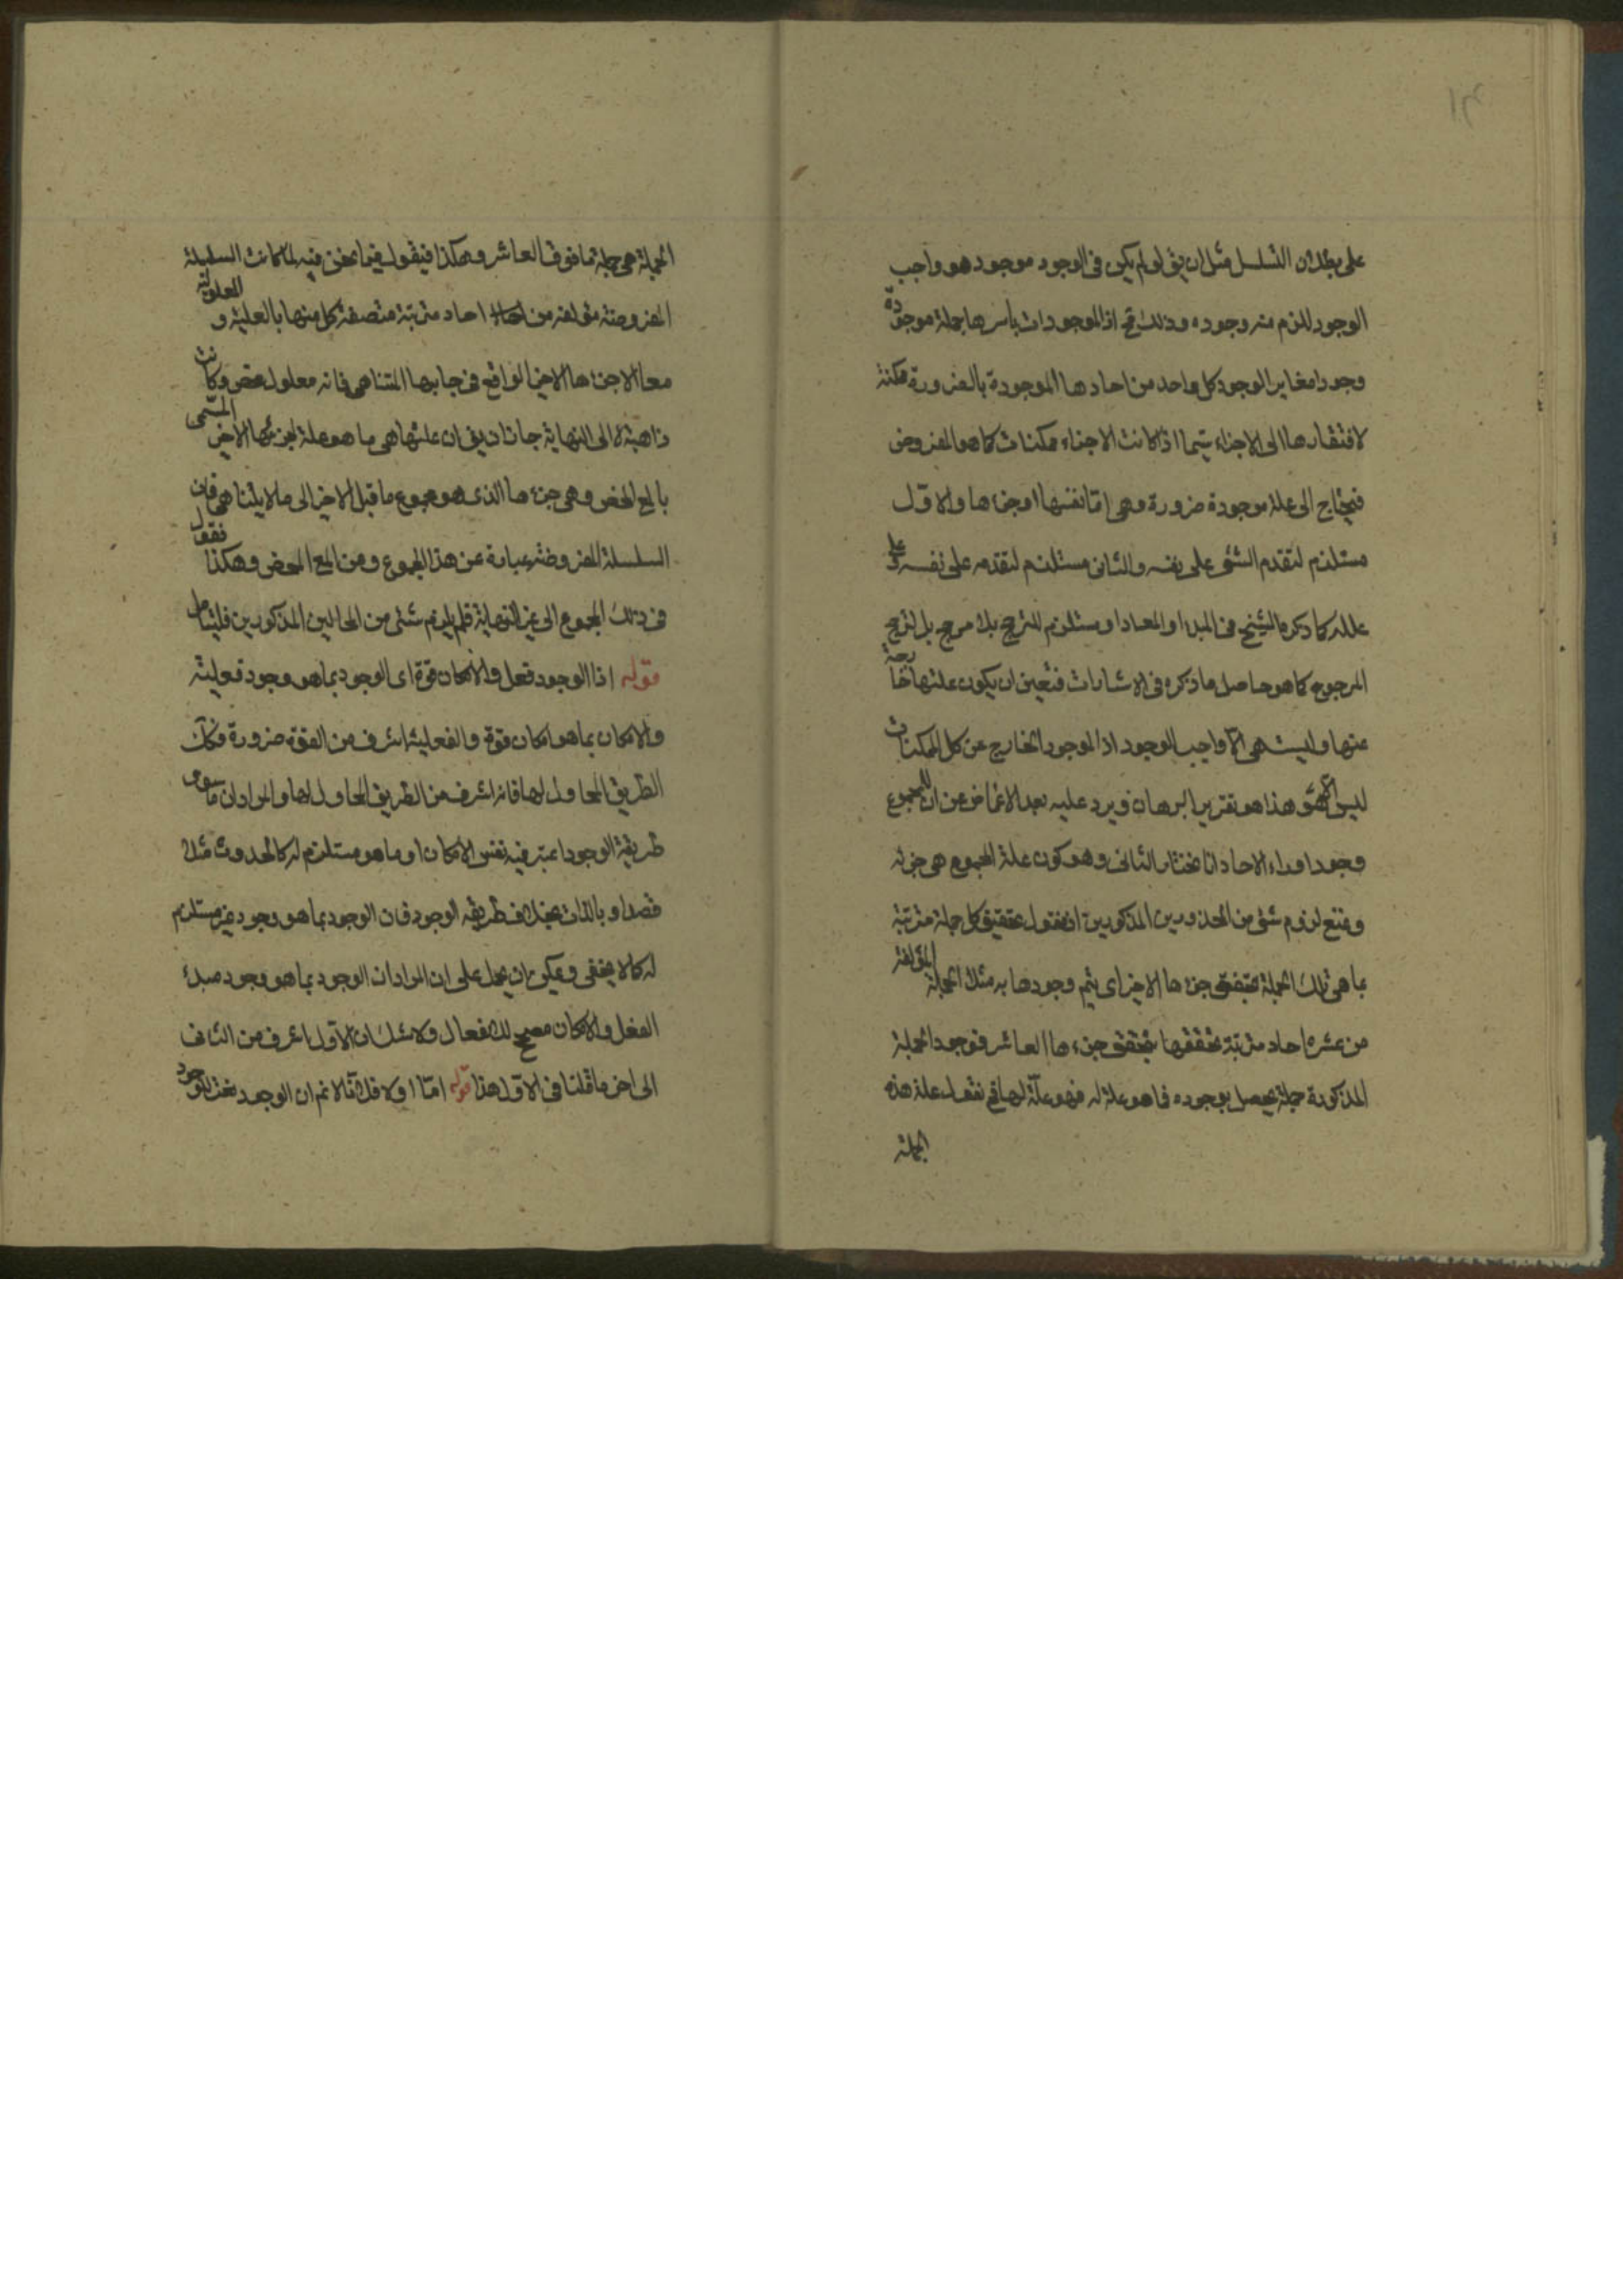 على بطلان التسلسل مثل ان يق لو لم يكن فى الوجود موجود هو واجب
الوجود للزم منه وجوده وذلك لان الموجودات باسرها جملة موجودة
وجودا مغاير الوجود كل واحد من احادها الموجودة بالضرورة ممكنة
لافتقارها الى الاجزاء سيما اذا كانت الاجزاء ممكنات كما هو المفروض
فيحتاج الى علة موجودة ضرورة وهى اما نفسها او جزءها والاول
مستلزم لتقدم الشئ على نفسه والثانى مستلزم لتقدمه على نفسه وعلى
علله كما ذكره الشيخ فى المبدا والمعاد او مستلزم للترجيح بلا مرجح بل لترجيح
المرجوح كما هو حاصل ما ذكره فى الاشارات فتعين ان يكون علتها خارجة
عنها وليست هى الا واجب الوجود اذ الموجود الخارج عن كل الممكنات
ليس الا هو هذا هو تقرير البرهان ويرد عليه بعد الاغماض عن ان للمجموع
وجودا وراء الاحاد انا نختار الثانى وهو كون علة المجموع هى جزئه
ونمنع لزوم شئ من المحذورين المذكورين اذ نقول تحقيق كل جملة مترتبة
بما هى تلك الجملة بتحقق جزءها الاخير اى يتم وجودها به مثلا الجملة المؤلفة
من عشرة احاد مترتبة تحققها بتحقق جزءها العاشر فوجود الجملة
المذكورة جملة يحصل بوجوده فما هو علة له فهو علة لها فح نقول علة هذه
الجملة
الجملة هى جملة ما فوق العاشر وهكذا فيقول فيما نحن فيه لما كانت السلسلة
المفروضة مؤلفة من احاد مترتبة متصفة كل منها بالعلية والمعلولية
معا الا جزءها الاخير الواقع فى جانبها المتناهى فانه معلول محض وكانت
ذاهبة لا الى النهاية جاز ان يق ان علتها هى ما هو علة لجزئها الاخير المسمى
بالمع المحض وهى جزءها الذى هو مجموع ما قبل الاخير الى ما لا يتناهى فان
السلسلة المفروضة عبارة عن هذا المجموع ومن المع المحض وهكذا نقول
فى ذلك المجموع الى غير النهاية فلم يلزم شئ من المحالين المذكورين فليتامل
قوله اذ الوجود فعل والامكان قوة اى الوجود بما هو وجود فعلية
والامكان بما هو امكان قوة والفعلية اشرف من القوة ضرورة فكان
الطريق المحاول لها فانه اشرف من الطريق المحاول لها والمراد ان ما سوى
طريقة الوجود اعتبر فيه نفس الامكان او ما هو مستلزم له كالحدوث مثلا
قصدا وبالذات بخلاف طريقة الوجود فان الوجود بما هو وجود غير مستلزم
له كما لا يخفى ويمكن ان يحمل على ان المراد ان الوجود بما هو وجود مبدء
الفعل والامكان مصحح للانفعال ولا شك ان الاول اشرف من الثانى
الى اخر ما قلنا فى الاول هذا قوله اما اولا فلانا لا نم ان الوجود